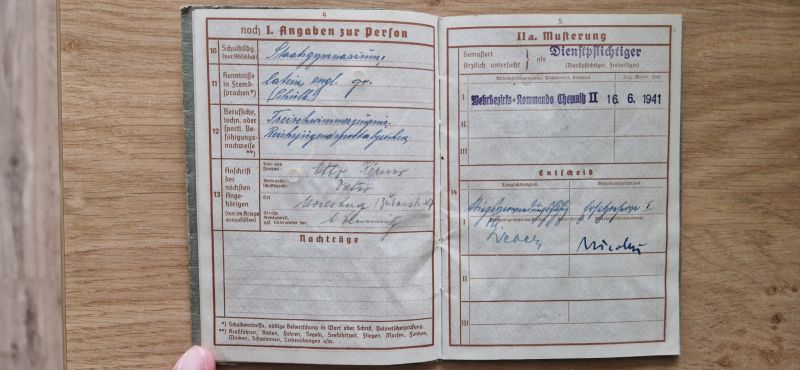 4
noch I. Angaben zur Person
10
Schulbildg.
(nur Abschluß)
Staatsgymnasium,
11
Kenntnisse
in Fremd-
sprachen*)
Latein, engl. gr.
(Schulk.)
12
Berufliche,
techn. oder
sportl. Be-
fähigungs-
nachweise
**)
Freischwimmerzeugnis
Reichsjugendsportabzeichen
13
Anschrift
der
nächsten
Ange-
hörigen
(nur im Kriege
auszufüllen)
Vor- und
Zuname:
Otto
Verwandt-
schaftsgrad:
Vater
Ort
Straße,
Nachträge
*) Schulkenntnisse, völlige Beherrschung in Wort oder Schrift, Dolmetscherprüfung.
**) Kraftfahren, Reiten, Fahren, Segeln, Seefahrtzeit, Fliegen, Morsen, Funken,
Winken, Schwimmen, Leibesübungen usw.
5
IIa. Musterung
Gemustert
Ärztlich untersucht
als
Dienstpflichtiger
(Dienstpflichtiger, Freiwilliger)
I
Wehrbezirks-Kommando Chemnitz II
16. 6. 1941
II
III
14
Entscheid
Tauglichkeitsgrad
Ersatzreserve I
I
II
III